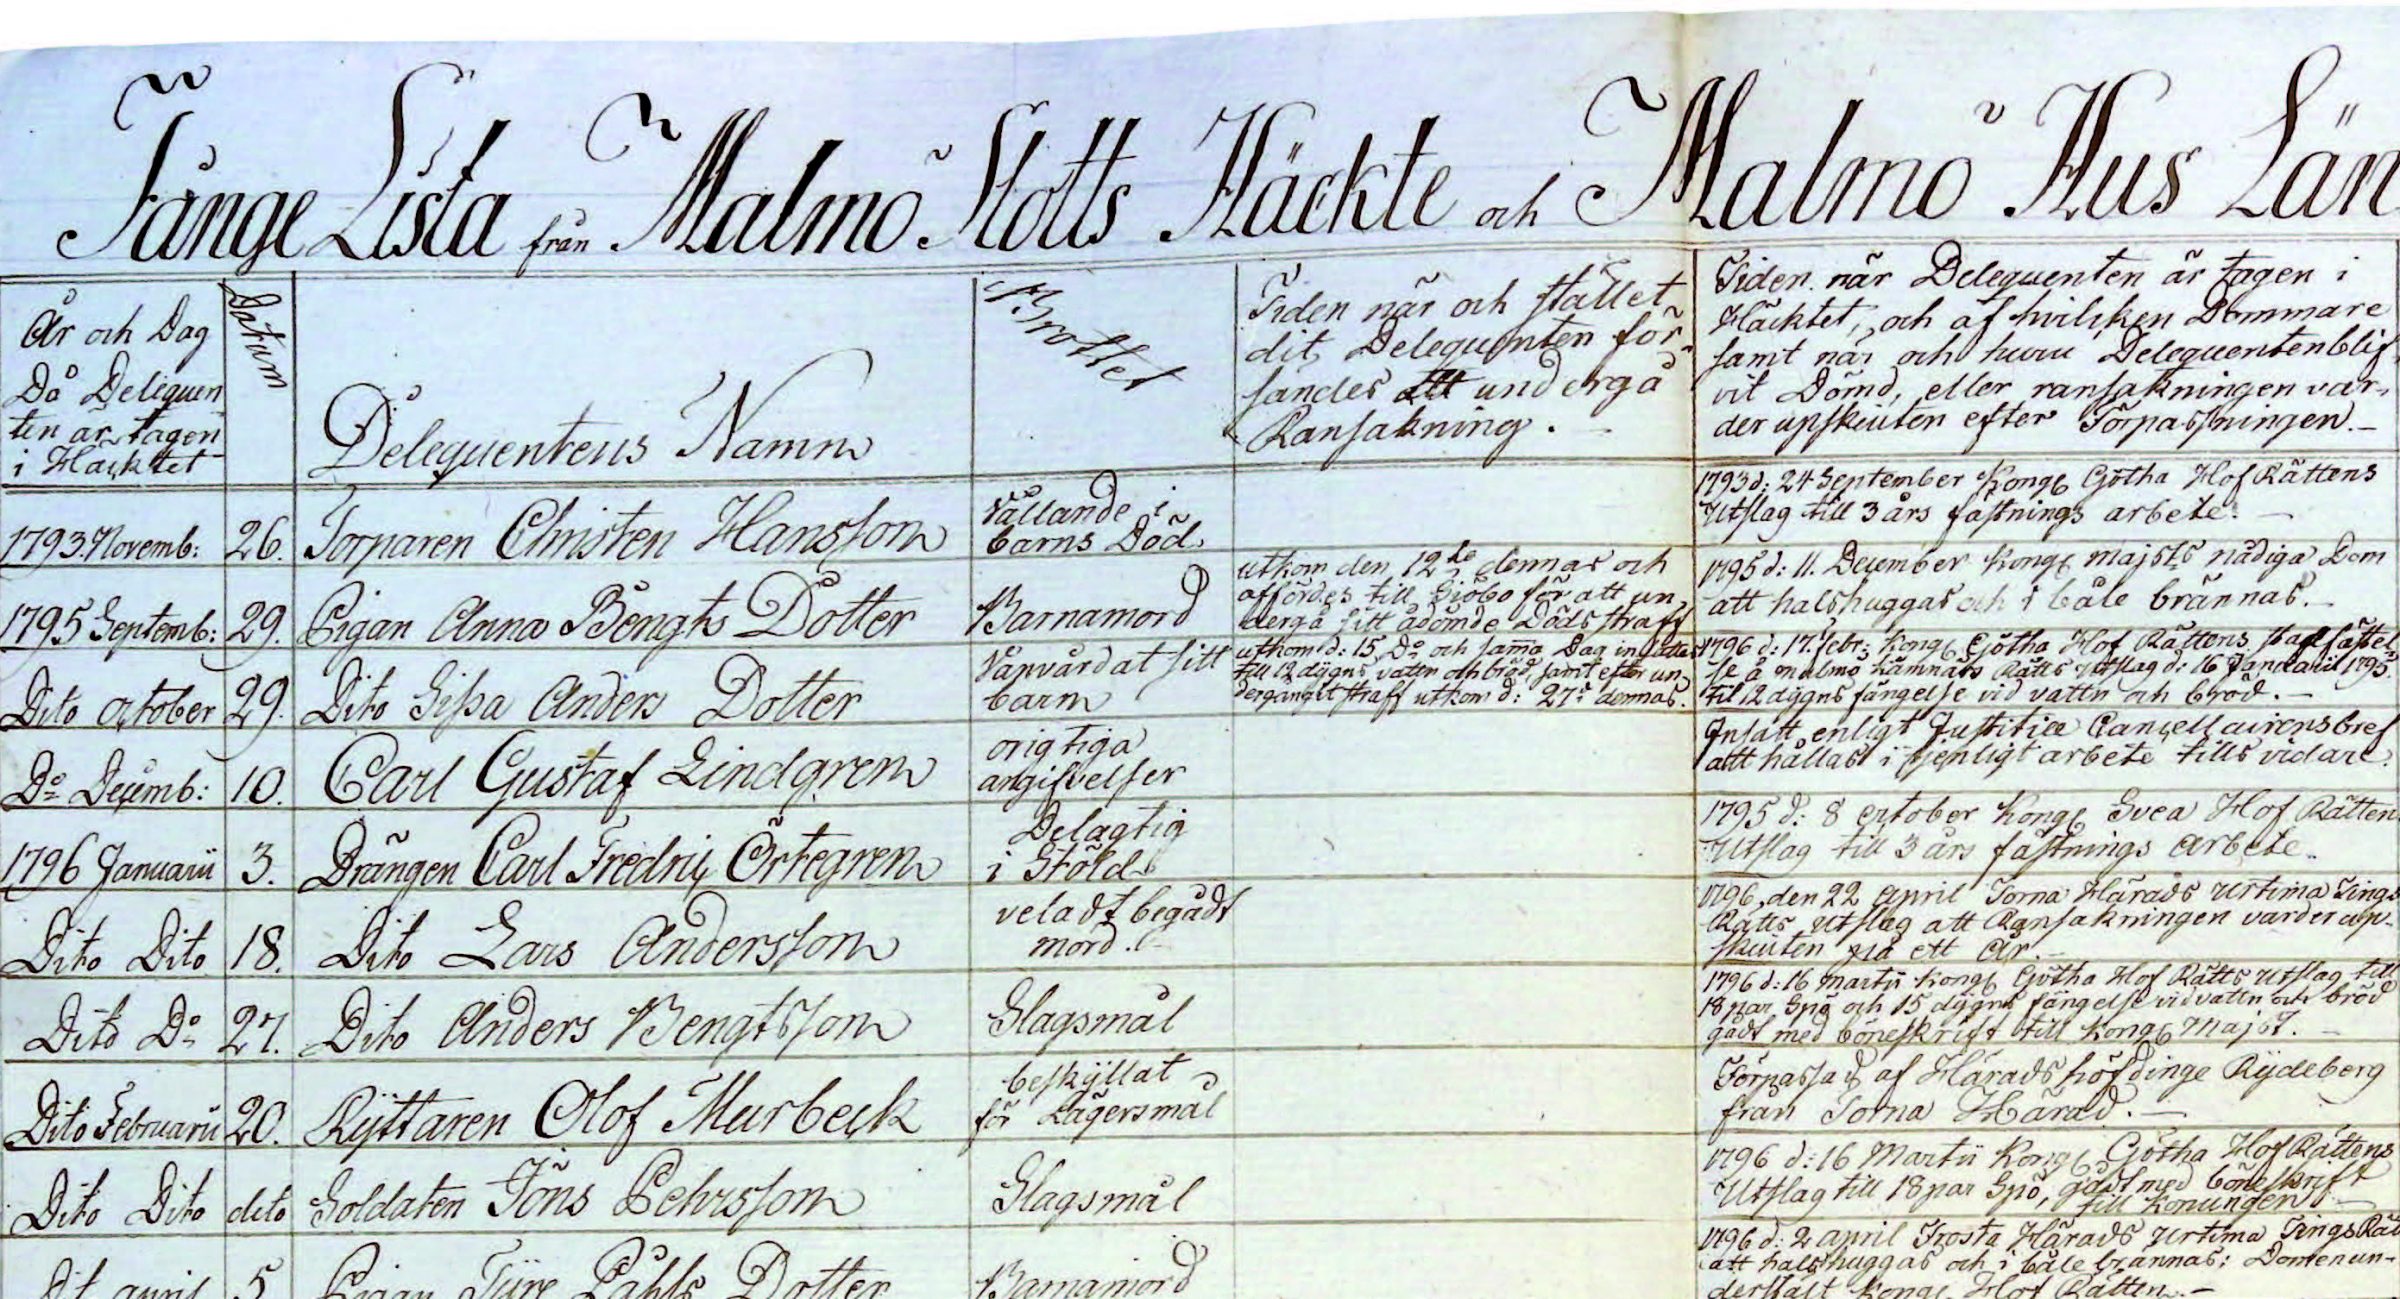 Fånge Lista från Malmö Slotts Häckte och Malmö Hus Län
År och Dag
Då Deliquen
ten är tagen
i Häcktet
Datum
Delequentens Namn
Brottet
Tiden när och stället
dit Delequenten för-
sändes att undergå
Ransakning.
Tiden när Delequenten är tagen i
Häcktet, och af hvilken Dommare
samt när och huru Delequenten blif
vit Dömd, eller ransakningen var-
der upskiuten efter Förpassningen.
1793 Novemb:
26.
Torparen Christen Hansson
Vållande i
barns Död.
1793 d: 24 September Kongl Götha Hof Rättens
Utslag till 3 års fästnings arbete.
1795 Septemb:
29.
Pigan Anna Bengts Dotter
Barnamord
utkom den 12te dennas och
affördes till Siöbo för att un-
dergå sitt ådömde Döds straff
1795 d: 11. December Kongl majsts nådiga Dom
att halshuggas och i båle brännas.
Dito october
29.
Dito Sissa Anders Dotter
Vanvårdat sitt
barn
utkom d: 15 Do och sama Dag insattes
till 12 dygns vatten och bröd, samt efter un-
dergånget straff utkom d: 27de dennas.
1796 d: 17. febr: Kongl Götha Hof Rättens stadfästel
se å malmö Kämnärs Rätts Utslag d: 16 Januarii 1795
til 12 dygns fängelse vid vatten och bröd.
Do Decemb:
10.
Carl Gustaf Lindgren
origtiga
angifvelser
Insatt enligt Justitiæ Cancellairens bref
att hållas i tjenligt arbete tills vidare.
1796 Januarii
3.
Drängen Carl Fredric Örtegren
Delagtig
i Stöld
1795 d: 8 october Kongl Svea Hof Rätten
Utslag till 3 års fästnings arbete.
Dito Dito
18.
Dito Lars Andersson
veladt begådt
mord.
1796, den 22 april Torna Härads Urtima Tings
Rätts Utslag att Ransakningen varder up-
skiuten på ett År.
Dito Do
27.
Dito Anders Bengtsson
Slagsmål
1796 d: 16 martii Kongl Götha Hof Rätts utslag till
18 par Spö och 15 dygns fängelse vid vatten och bröd
gådt med böneskrift till Kongl Majst.
Dito Februarii
20.
Ryttaren Olof Murbeck
beskyllat
för Lägersmål
Förpassad af Härads höfdinge Rydeberg
från Torna Härad.
Dito Dito
dito
Soldaten Jöns Pehrsson
Slagsmål
1796 d: 16 Martii Kongl Götha Hof Rättens
Utslag till 18 par Spö, gådt med böneskrift
till Konungen
Dit april
5
Pigan Tyre Påhls Dotter
Barnamord
1796 d: 2 april Frosta Härads Urtima Tings Rät
att halshuggas och i båle brännas: Domen un-
derstält Kongl Hof Rätten.